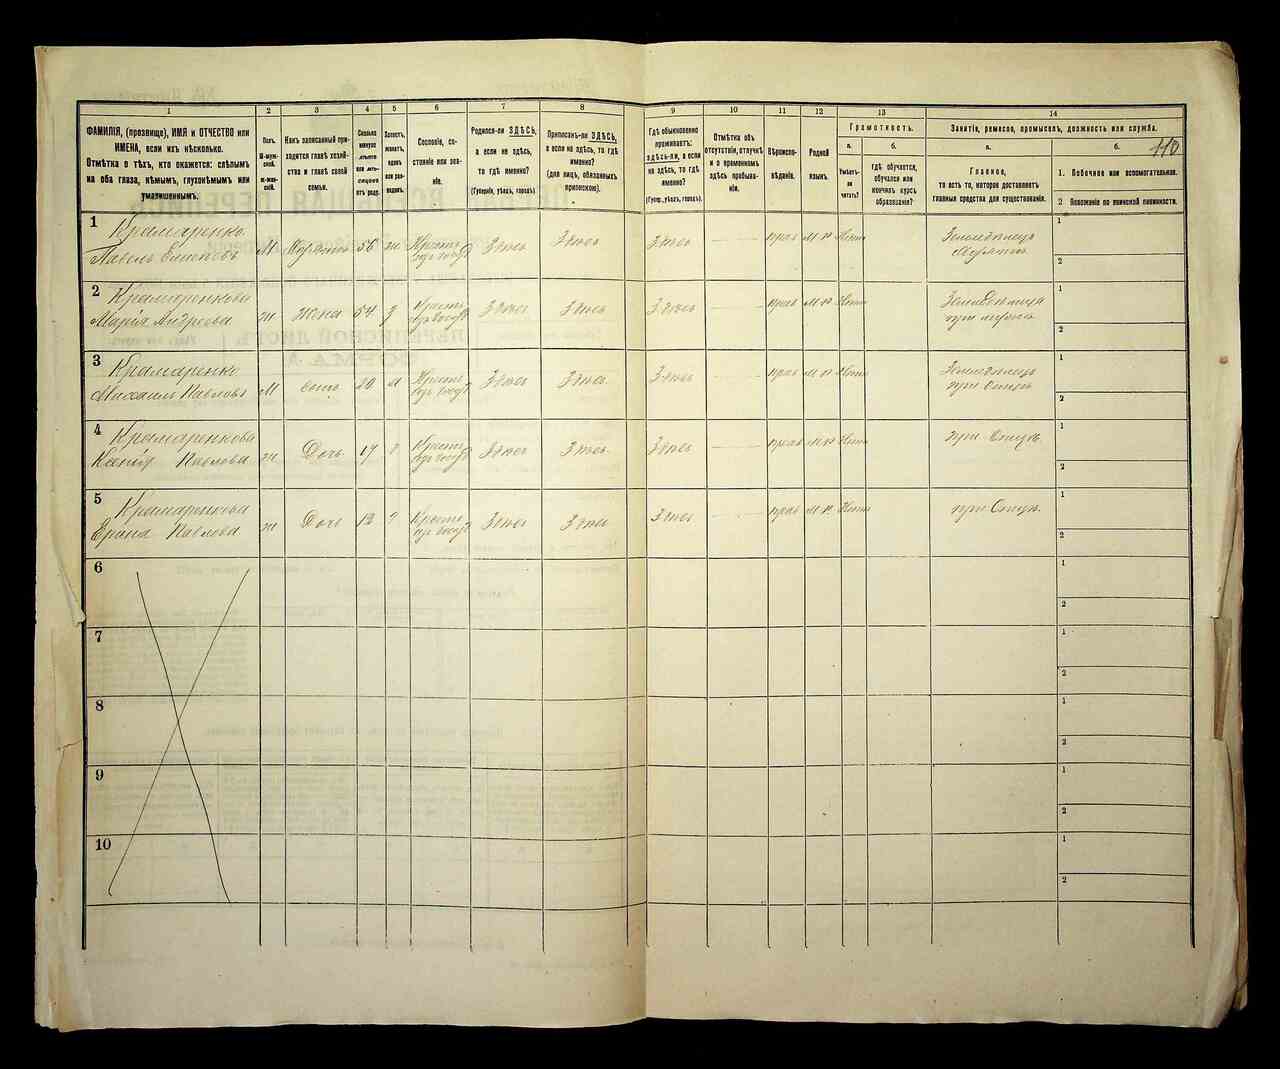 1 2 3 4 5 6 7 8 9 10 11 12 13 14
ФАМИЛІЯ, (прозвище), ИМЯ и ОТЧЕСТВО или
ИМЕНА, если ихъ нѣсколько.
Отмѣтка о тѣхъ, кто окажется: слѣпымъ
на оба глаза, нѣмымъ, глухонѣмымъ или
умалишеннымъ.
Полъ.
М-муж-
ской.
Ж-жен-
скій.
Какъ записанный при-
ходится главѣ хозяй-
ства и главѣ своей
семьи.
Сколько
минуло
лѣтъ
или мѣ-
сяцевъ
отъ роду.
Холостъ,
женатъ,
вдовъ
или раз-
веденъ.
Сословіе, со-
стояніе или зва-
ніе.
Родился-ли ЗДѢСЬ,
а если не здѣсь,
то гдѣ именно?
(Губернія, уѣздъ, городъ).
Приписанъ-ли ЗДѢСЬ,
а если не здѣсь, то гдѣ
именно?
(для лицъ, обязанныхъ
припискою).
Гдѣ обыкновенно
проживаетъ:
здѣсь-ли, а если
не здѣсь, то гдѣ
именно?
(Губерн., уѣздъ, городъ).
Отмѣтка объ
отсутствіи, отлучкѣ
и о временномъ
здѣсь пребыва-
ніи.
Вѣроиспо-
вѣданіе.
Родной
языкъ.
Грамотность.
а.
Умѣетъ-
ли
читать?
б.
гдѣ обучается,
обучался или
кончилъ курсъ
образованія?
Занятіе, ремесло, промыселъ, должность или служба.
110
а.
Главное,
то есть то, которое доставляетъ
главныя средства для существованія.
б.
1. Побочное или вспомогательное.
2 Положеніе по воинской повинности.
1 Крамаренко
Павелъ М 56 ж Здѣсь Здѣсь Здѣсь прав М Р Нѣтъ Земледѣлецъ
1
2
2 Крамаренкова
Марія Андреева ж Жена 54 Здѣсь Здѣсь Здѣсь прав М Р Нѣтъ
при мужѣ
1
2
3 Крамаренко
Михаилъ Павловъ М сынъ 20 Здѣсь Здѣсь Здѣсь прав М Р Нѣтъ Земледѣлецъ
при Отцѣ
1
2
4 Крамаренкова
Павлова ж Дочь 17 Здѣсь Здѣсь Здѣсь прав М Р Нѣтъ при Отцѣ
1
2
5 Крамаренкова
Павлова ж Дочь 12 Здѣсь Здѣсь Здѣсь прав М Р Нѣтъ при Отцѣ
1
2
6
1
2
7
1
2
8
1
2
9
1
2
10
1
2